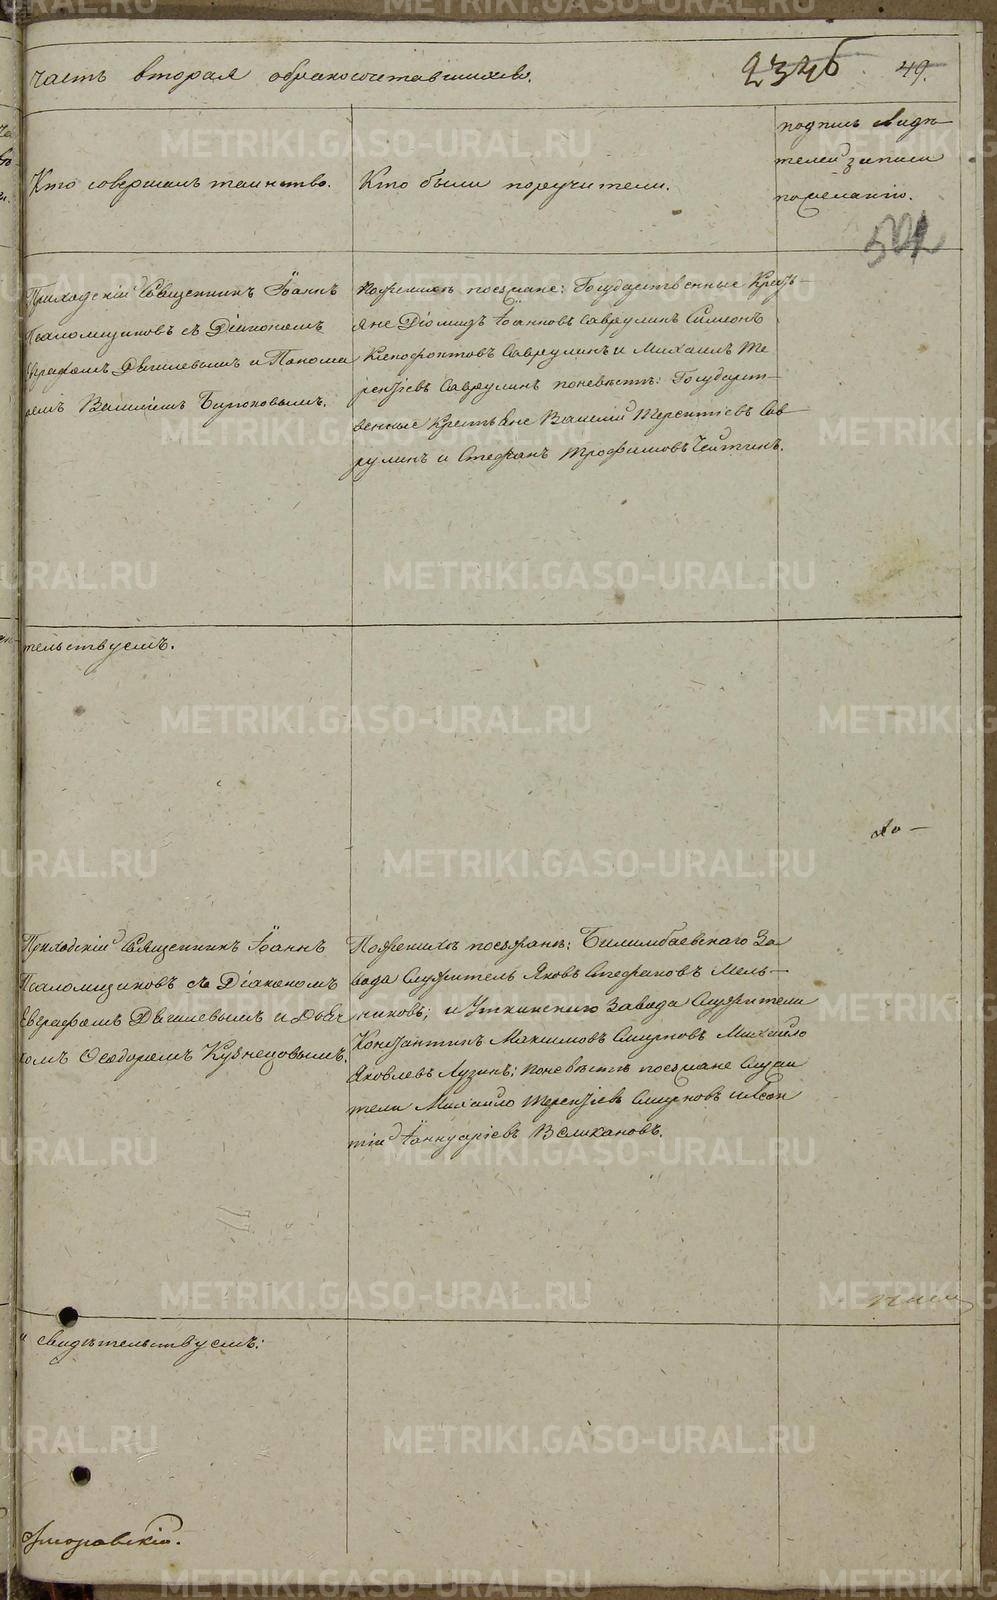 часть вторая о бракосочетавшихся.
49.
Кто совершалъ таинство.
Кто были поручители.
подпись свидѣ-
телей записи
по желанію.
501
Приходскій Священникъ Іоаннъ
Псаломщиковъ съ Діакономъ
Евграфомъ Дягилевымъ и Понома
ремъ Василіемъ Бирюковымъ.
По женихѣ поезжане: Государственные Кресть-
яне Діомидъ Іоанновъ Саврулинъ Симеонъ
Ксенофонтовъ Саврулинъ и Михаилъ Те
рентіевъ Саврулинъ по невѣстѣ: Государст-
венные Крестьяне Василій Терентіевъ Сав
рулинъ и Стефанъ Трофимовъ
тельствуемъ.
Приходскій Священникъ Іоаннъ
Псаломщиковъ съ Діакономъ
Евграфомъ Дягилевымъ и Дьяч
комъ Ѳеодоромъ Кузнецовымъ.
По женихѣ поезжане: Билимбаевскаго За
вода Служитель Яковъ Стефановъ Мель-
никовъ; и Уткинскаго Завода Служители
Константинъ Максимовъ Смирновъ Михайло
Яковлевъ Лузинъ; по невѣстѣ поезжане Служи
тели Михайло Терентіевъ Смирновъ и Леон
тій Іаннуаріевъ Великановъ.
свидѣтельствуемъ:
METRIKI.GASO-URAL.RU